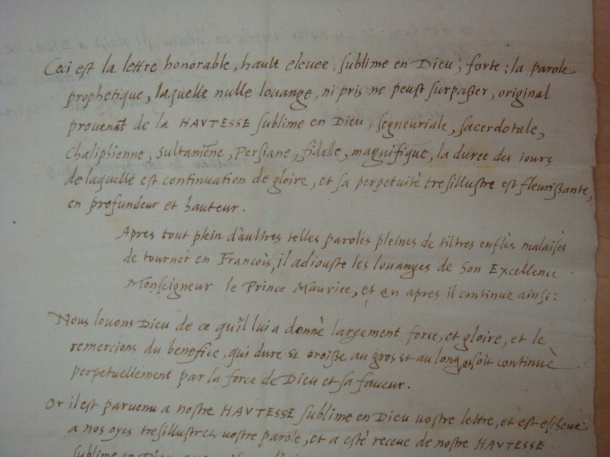 Ceci est la lettre honorable, haute elevee, sublime en Dieu; forte: la parole
prophetique, laquelle nulle louange, ni pris ne peust surpasser, original
provenāt de la HAVTESSE sublime en Dieu, seigneuriale, sacerdotale,
Chaliphienne, Sultaniēne, Persiane, fidele, magnifique, la duree des jours
de laquelle est continuation de gloire, et sa perpetuité tresillustre est fleurissante,
en profundeur et hauteur.
Apres tout plein d'aultres telles paroles pleines de tiltres enflés malaisés
de tourner en Francois, il adiouste les louanges de son Excellence
Monseigneur le Prince Maurice, et en apres il continue ainsi:
Nous louons Dieu de ce qu'il lui a donné largement force, et gloire, et le
remercions du benefice, qui dure se croisse au gros et au long, soit continué
perpetuellement par la force de Dieu et sa faveur.
Or il est parvenu a nostre HAVTESSE sublime en Dieu vostre lettre, et est escheue
a nos oyes tresillustres vostre parole, et a esté receue de nostre HAVTESSE
sublime en Dieu